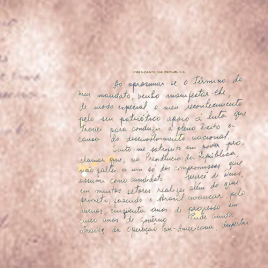 PRESIDENTE DA REPÚBLICA
Ao aproximar-se o término do
meu mandato, venho manifestar-lhe,
de modo especial o meu reconhecimento
pelo seu patriótico apoio à luta que
travei para conduzir a pleno êxito a
causa do desenvolvimento nacional.
Sinto-me satisfeito em poder pro-
clamar que, na Presidência da República,
não faltei a um só dos compromissos que
assumi como candidato
em muitos setores realizei além do que
prometi, fazendo o Brasil avançar pelo
menos, cinquenta anos de progresso em
cinco anos de Governo
através da Operação Pan-Americana